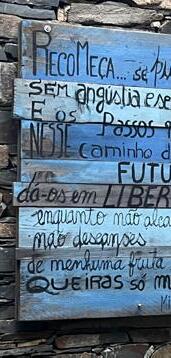 RECOMEÇA... se pu
SEM angustia e se
E os Passos q
NESSE caminho d
FUTU
dá-os em LIBER
enquanto não alca
não descanses
de nenhuma fruta
QUEIRAS só m
Mi